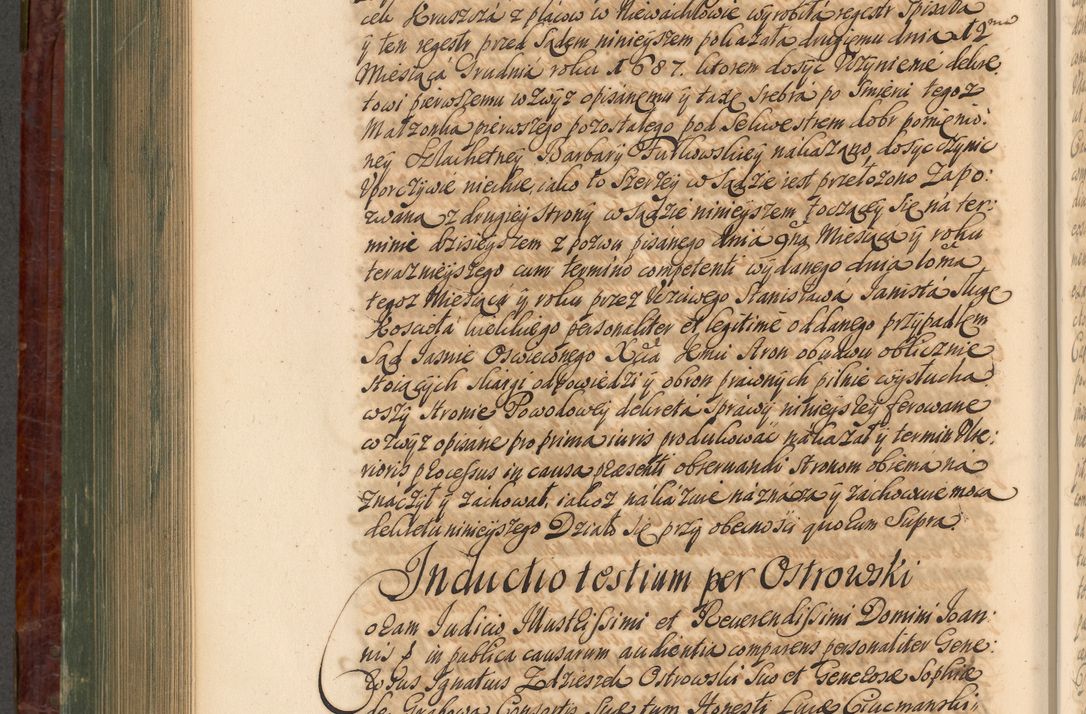 celi Kruszczá z placow w Niewachlowie wyrobiłá regestr spisała
ÿ ten regestr przed Sądem ninieyszem pokazała drugiemu dnia 12ma
Miesiąca Grudnia roku 1687. ktorem dosyc uczynienie dekre,
towi pierwszemu wzwyz opisanemu ÿ taxę srebrá po smierci tegoz
Małzonka pierwszego pozostałego pod Sekwestrem dobr pomienio:
neÿ Szlachetneÿ Barbarÿ Futkowskieÿ nakazano, dosyc czynic
Uporczywie niechce, iako to szerzeÿ w Sądzie iest przełozono Zapo:
zwana z drugieÿ strony w Sądzie ninieyszem toczącÿ się ná ter:
minie dzisieyszem z pozwu pisanego dniá 9na Miesiąca ÿ roku
terazniejszego cum termino competenti wydanego dnia 10ma
tegoz Miesiąca ÿ roku przez Uczciwego Stanisławá Janista Sługę
Koscioła kielckiego personaliter et legitime oddanego przypadkiem
Sąd Jasnie Oswieconego Xcia Jmci stron obudwu oblicznie
stoiących skargi odpowiedzi ÿ obron prawnych pilnie wysłucha
wszÿ stronie Powodoweÿ dekretá sprawÿ ninieyszeÿ ferowane
wzwyz opisane pro prima iuris produkowac nakazał ÿ termin Ulte:
rioris processus in causa præsenti observandi stronom obiema ná
znaczył ÿ zachował, iakoz nakazuie náznácza ÿ zachowuie mocą
dekretu ninieyszego Działo się przÿ obecnosci quorum Supra
Inductio testium per Ostrowski
Coram Judicio Illustrissimi et Reverendissimi Domini Joan:
nis in publica causarum audientia comparens personaliter Gene:
rosus Ignatius Zdzieszek Ostrowski suo et Generosæ Sophiæ
de Grabowa Consortis Suæ tum Honesti Lucæ Ciucmanski